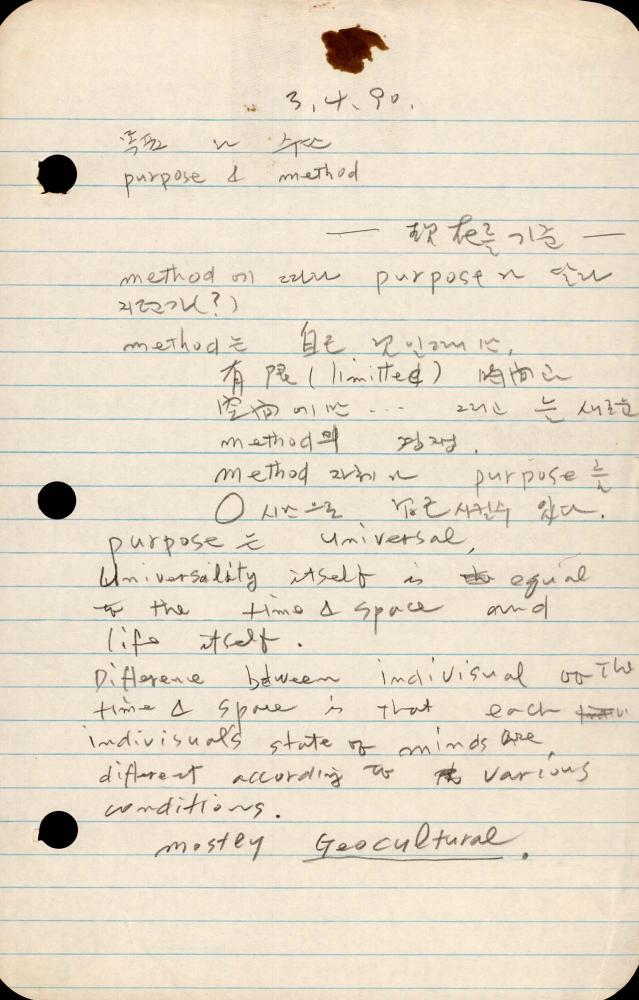 3, 4, 90.
목표 와 수단
purpose & method
— 現在를 기준 —
method 에 따라 purpose 가 달라
지는가(?)
method는
有限 (limitted) 時間과
空間에만 ... 그리고 는 새로운
method의
method 자체가 purpose를
O 시킬수 있다.
purpose는 universal,
Universality itself is equal
to the time & space and
life itself.
Difference between indivisual or the
time & space is that each
indivisual's state of minds are
different according to various
conditions.
mostly Geocultural.